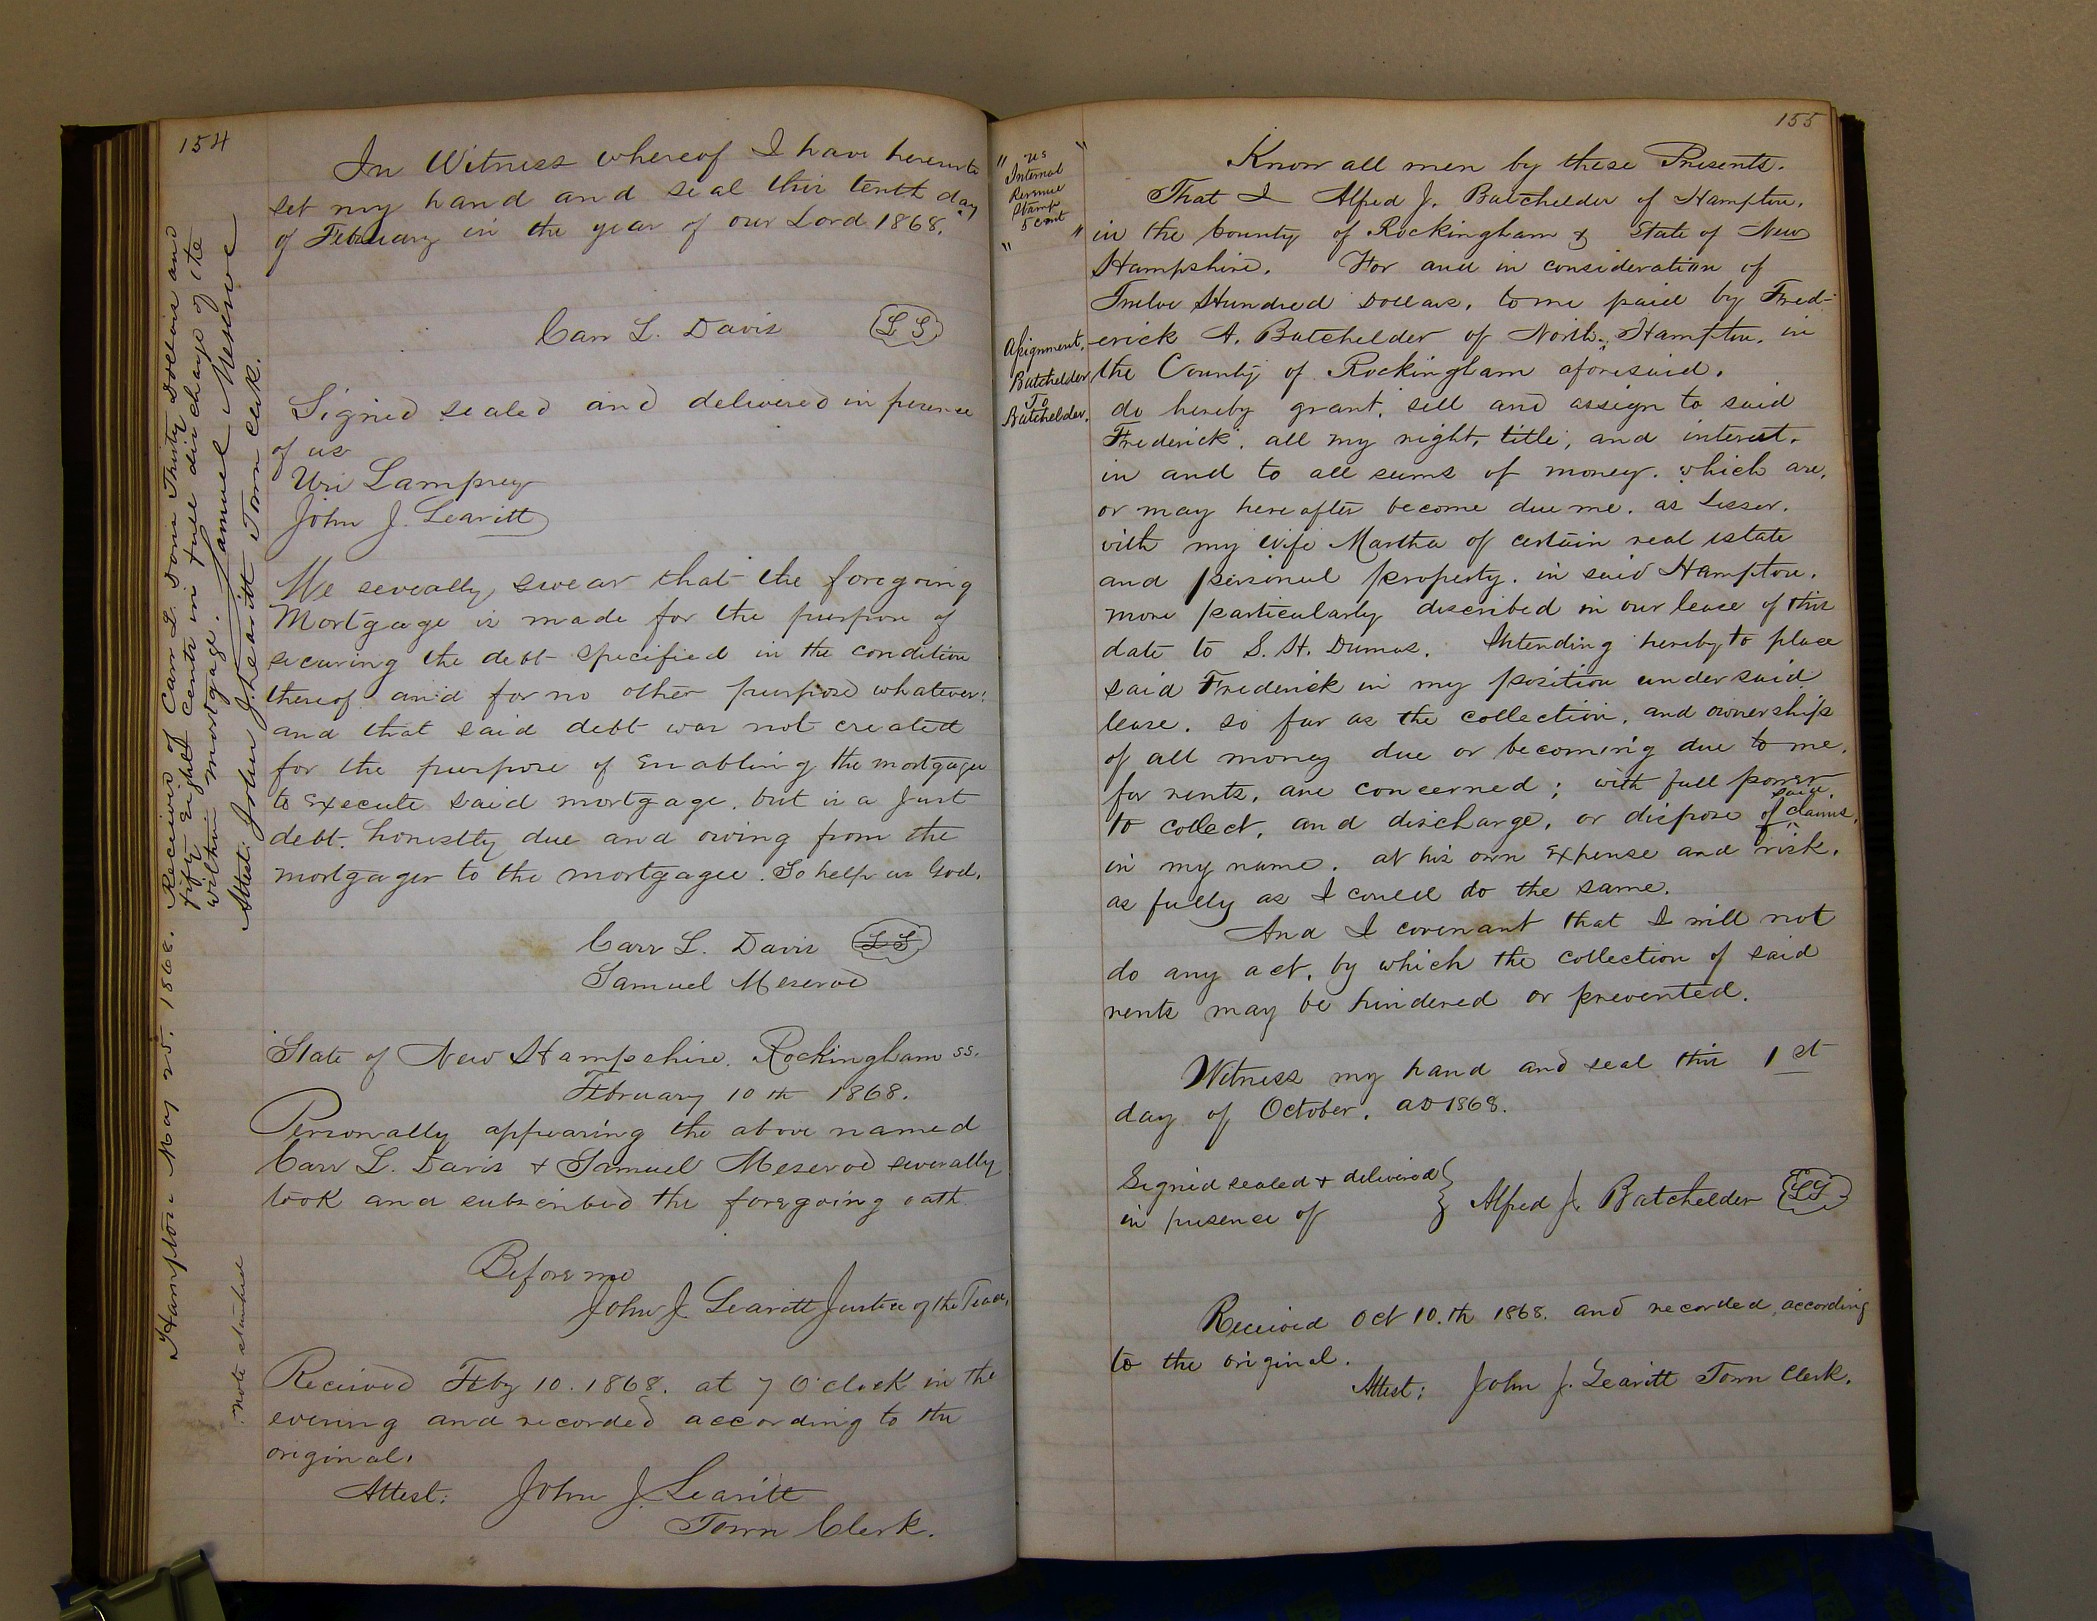 154
In Witness whereof I have hereunto
set my hand and seal this tenth day
of February in the year of our Lord 1868.
Carr L. Davis (L S)
Signed sealed and delivered in presence
of us
Uri Lamprey
John J. Leavitt
We severally swear that the foregoing
Mortgage is made for the purpose of
securing the debt specified in the condition
thereof and for no other purpose whatever:
and that said debt was not created
for the purpose of Enabling the mortgager
to Execute said mortgage, but is a Just
debt honestly due and owing from the
mortgager to the mortgagee. So help us God.
Carr L. Davis (L S)
Samuel Meserve
State of New Hampshire. Rockingham ss.
February 10th 1868.
Personally appearing the above named
Carr L. Davis + Samuel Meserve severally
took and subscribed the foregoing oath
Before me
John J. Leavitt Justice of the Peace.
Received Feby 10. 1868. at 7 O'clock in the
evening and recorded according to the
original.
Attest: John J. Leavitt
Town Clerk.
Hampton May 25. 1868. Received of Carr L. Davis Thirty Dollars and
fifty eight cents in full discharge of the
within mortgage. Samuel Meserve
Attest. John J. Leavitt Town Clerk.
note stamped
155
" US "
Internal
Revenue
Stamp
5 cent
" "
Assignment.
Batchelder
To
Batchelder.
Know all men by these Presents.
That I Alfred J. Batchelder of Hampton,
in the County of Rockingham & State of New
Hampshire. For and in consideration of
Twelve Hundred Dollars, to me paid by Fred-
erick A. Batchelder of North Hampton, in
the County of Rockingham aforesaid,
do hereby grant, sell and assign to said
Frederick, all my right, title, and interest,
in and to all sums of money, which are,
or may hereafter become due me, as Lessor,
with my wife Martha of certain real estate
and personal property, in said Hampton,
more particularly described in our lease of this
date to S. H. Dumas. Intending hereby to place
said Frederick in my position under said
lease, so far as the collection, and ownership
of all money due or becoming due to me,
for rents, are concerned; with full power
to collect, and discharge, or dispose of said claims,
in my name, at his own Expense and risk,
as fully as I could do the same.
And I covenant that I will not
do any act, by which the collection of said
rents may be hindered or prevented.
Witness my hand and seal this 1st
day of October, AD 1868.
Signed sealed + delivered
in presence of } Alfred J. Batchelder (LS)
Received Oct 10.th 1868. and recorded, according
to the original.
Attest: John J. Leavitt Town Clerk.